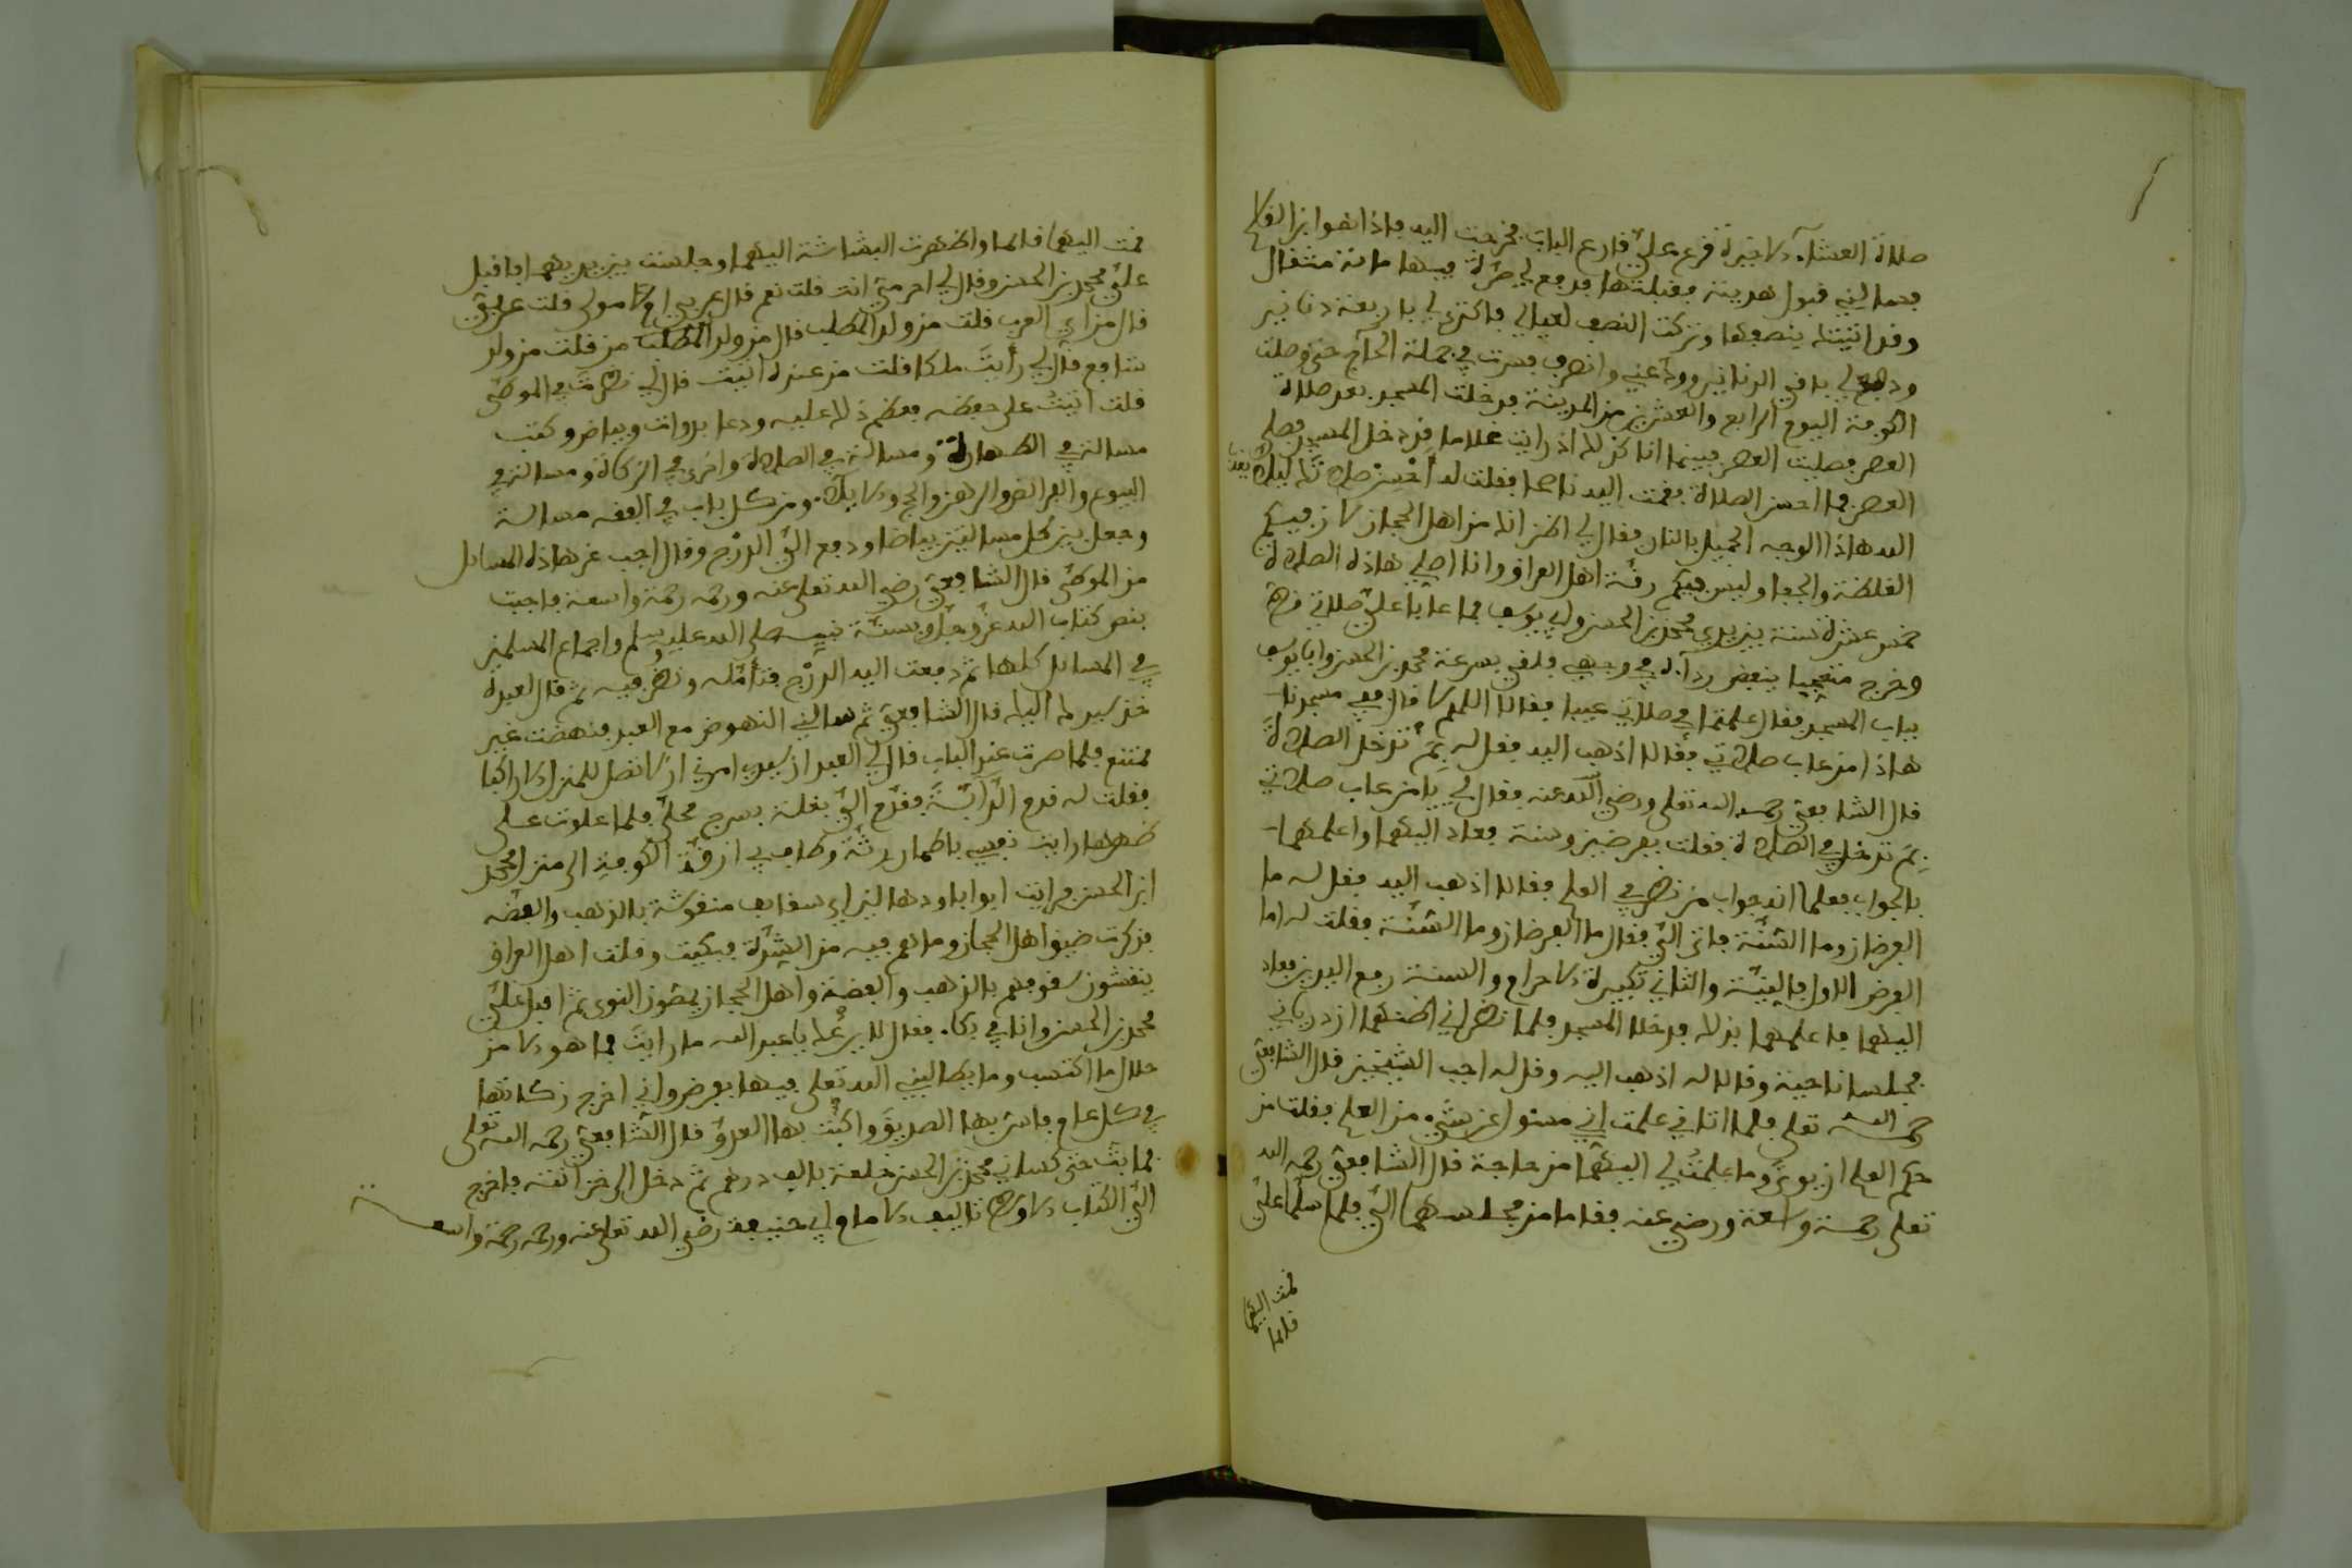 صلاة العشاء الاخيرة قرع عليّ قارع الباب فخرجت اليه فاذا هو ابن القاسم
فسالني قبول هدية فقبلتها فدفع لي صرة فيها مائة مثقال
وقد اتيتك بنصفها وتركت النصف لعيالي فاكترى لي باربعة دنانير
ودفع لي باقي الدنانير وودّعني وانصرف فسرت في جملة الحاج حتى وصلت
الكوفة اليوم الرابع والعشرين من المدينة فدخلت المسجد بعد صلاة
العصر فصليت العصر فبينما انا كذلك اذ رايت غلاما قد دخل المسجد فصلى
العصر فما احسن الصلاة فقمت اليه ناصحا فقلت له أحْسِنْ صلاتك ليلا يعذب
الله هاذا الوجه الجميل بالنار فقال لي اظن انك من اهل الحجاز لان فيكم
الغلظة والجفا وليس فيكم رقة اهل العراق وانا اصلي هاذه الصلاة
خمس عشرة سنة بين يدي محمد بن الحسن وابي يوسف فما عابا عليّ صلاتي قط
وخرج متعجبا ينفض رداءه في وجهي فلقي بسرعة محمد بن الحسن وابا يوسف
بباب المسجد فقال علمتما في صلاتي عيبا فقالا اللهم لا قال ففي مسجدنا
هاذا من عاب صلاتي فقالا اذهب اليه فقل له بِمَ تدخل الصلاة
قال الشافعي رحمه الله تعلى ورضي الله عنه فقال لي يَا من عاب صلاتي
بِمَ تدخل في الصلاة فقلت بفرضين وسنة فعاد اليهما واعلمهما
بالجواب فعلما انه جواب من نظر في العلم فقالا اذهب اليه فقل له ما
الفرضان وما السّنّة فاتى اليّ فقال ما الفرضان وما السّنّة فقلت له اما
الفرض الاول فالنِيّة والثاني تكبيرة الاحرام والسنة رفع اليدين فعاد
اليهما فاعلمهما بذلك فدخلا المسجد فلما نظراني اظنهما ازدرياني
فجلسا ناحية وقالا له اذهب اليه وقل له اجب الشيخين قال الشافعي
رحمه الله تعلى فلما اتاني علمت اني مسئول عن شيء من العلم فقلت من
حكم العلم ان يوتى وما علمتُ لي اليهما من حاجة قال الشافعي رحمه الله
تعلى رحمة واسعة ورضي عنه فقاما من مجلسهما اليّ فلما سلّما عليّ
قمت اليهما
قائما
قمت اليهما قائما واظهرت البشاشة اليهما وجلست بين يديهما فاقبل
عليّ محمد بن الحسن وقال لي احرميّ انت قلت نعم قال عربي ام مولى قلت عربيّ
قال من اي العرب قلت من ولد المطلب قال من ولد المطلب من قلت من ولد
شافع قال لي رأيتَ مالكا قلت من عنده اتيت قال لي نظرتَ في الموطى
قلت اتيتُ على حفظه فعظم ذلك عليه ودعا بدوات وبياض وكتب
مسالة في الطهارة ومسالة في الصلاة واخرى في الزكاة ومسالة في
البيوع والفرائض والرهن والحج والايلاء ومن كل باب في الفقه مسالة
وجعل بين كل مسالتين بياضا ودفع اليّ الدرْج وقال اجب عن هاذه المسايل
من الموطى قال الشافعيّ رضي الله تعلى عنه ورحمه رحمة واسعة فاجبت
بنص كتاب الله عزّ وجلّ وبسنّة نبيه صلى الله عليه وسلم واجماع المسلمين
في المسايل كلها ثم دفعت اليه الدرْج فتأمّله ونظر فيه ثم قال لعبده
خذ سيدك اليك قال الشافعيّ ثم سالني النهوض مع العبد فنهضت غير
ممتنع فلما صرت عند الباب قال لي العبد ان سيدي امرني ان لا تصل للمنزل الا راكبا
فقلت له قدم الدّابّة فقدم اليّ بغلة بسرج محلّى فلما علوت على
ظهرها رايت نفسي باطمار رثّة وطاف بي ازقّة الكوفة الى منزل محمد
ابن الحسن فرايت ابوابا ودهاليز اي سقايف منقوشة بالذهب والفضه
فذكرت ضيق اهل الحجاز وما هم فيه من الشِدّة فبكيت وقلت اهل العراق
ينقشون سقوفهم بالذهب والفضة واهل الحجاز يمصّون النوى ثم اقبل عليّ
محمد بن الحسن وانا في بكاء فقال لا يرعْك يا عبد الله ما رايتَ فما هو الا من
حلال ما اكتسب وما يطالبني الله تعلى فيها بفرض واني اخرج زكاتها
في كل عام فاسرّ بها الصديق واكبُت بها العدوّ قال الشافعي رحمه الله تعلى
فما بتّ حتى كساني محمد بن الحسن خلعة بالف درهم ثم دخل الى خزانته فاخرج
اليّ الكتاب الاوسط تاليف الامام ابي حنيفة رضي الله تعلى عنه ورحمه رحمة واسعة